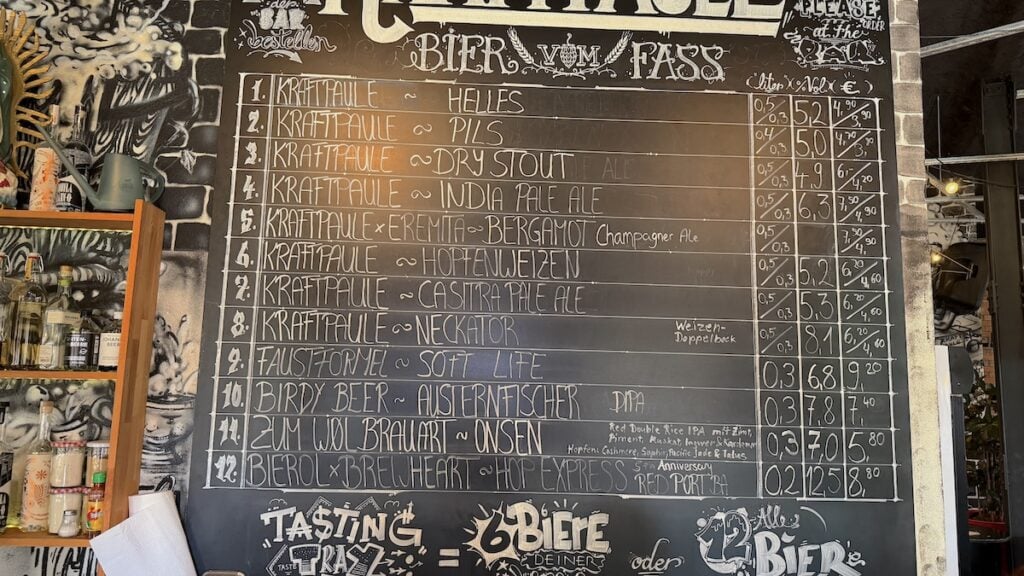 KRAFTPAULE
der BAR
bestellen
PLEASE
at the
BIER VOM FASS
(Liter x %Vol x €)
1. KRAFTPAULE ~ HELLES 0,5/0,3 5,2 4,90/3,90
2. KRAFTPAULE ~ PILS 0,4/0,3 5,0
3. KRAFTPAULE ~ DRY STOUT 0,5/0,3 4,9 6,-/4,20
4. KRAFTPAULE ~ INDIA PALE ALE 0,5/0,3 6,3 7,50/4,90
5. KRAFTPAULE x EREMITA ~ BERGAMOT Champagner Ale 0,5/0,3
6. KRAFTPAULE ~ HOPFENWEIZEN 0,5/0,3 5,2
7. KRAFTPAULE ~ CASITRA PALE ALE 0,5/0,3 5,3
8. KRAFTPAULE ~ NECKATOR Weizen-Doppelbock 0,5/0,3 8,1
9. FAUSTFORMEL ~ SOFT LIFE 0,3 6,8 9,20
10. BIRDY BEER ~ AUSTERNFISCHER DIPA 0,3 7,8 7,40
11. ZUM WØL BRAUART ~ ONSEN Red Double Rice IPA mit Zimt, Piment, Muskat, Ingwer & Kardamom 0,3 7,0 5,80
Hopfen: Cashmere, Saphir, Pacific Jade & Talus
12. BIEROL x BREWHEART ~ HOP EXPRESS Anniversary RED PORT BA 0,2 12,5 8,80
TASTING TRAY = 6 BIERE DEINER oder Alle 12 BIER